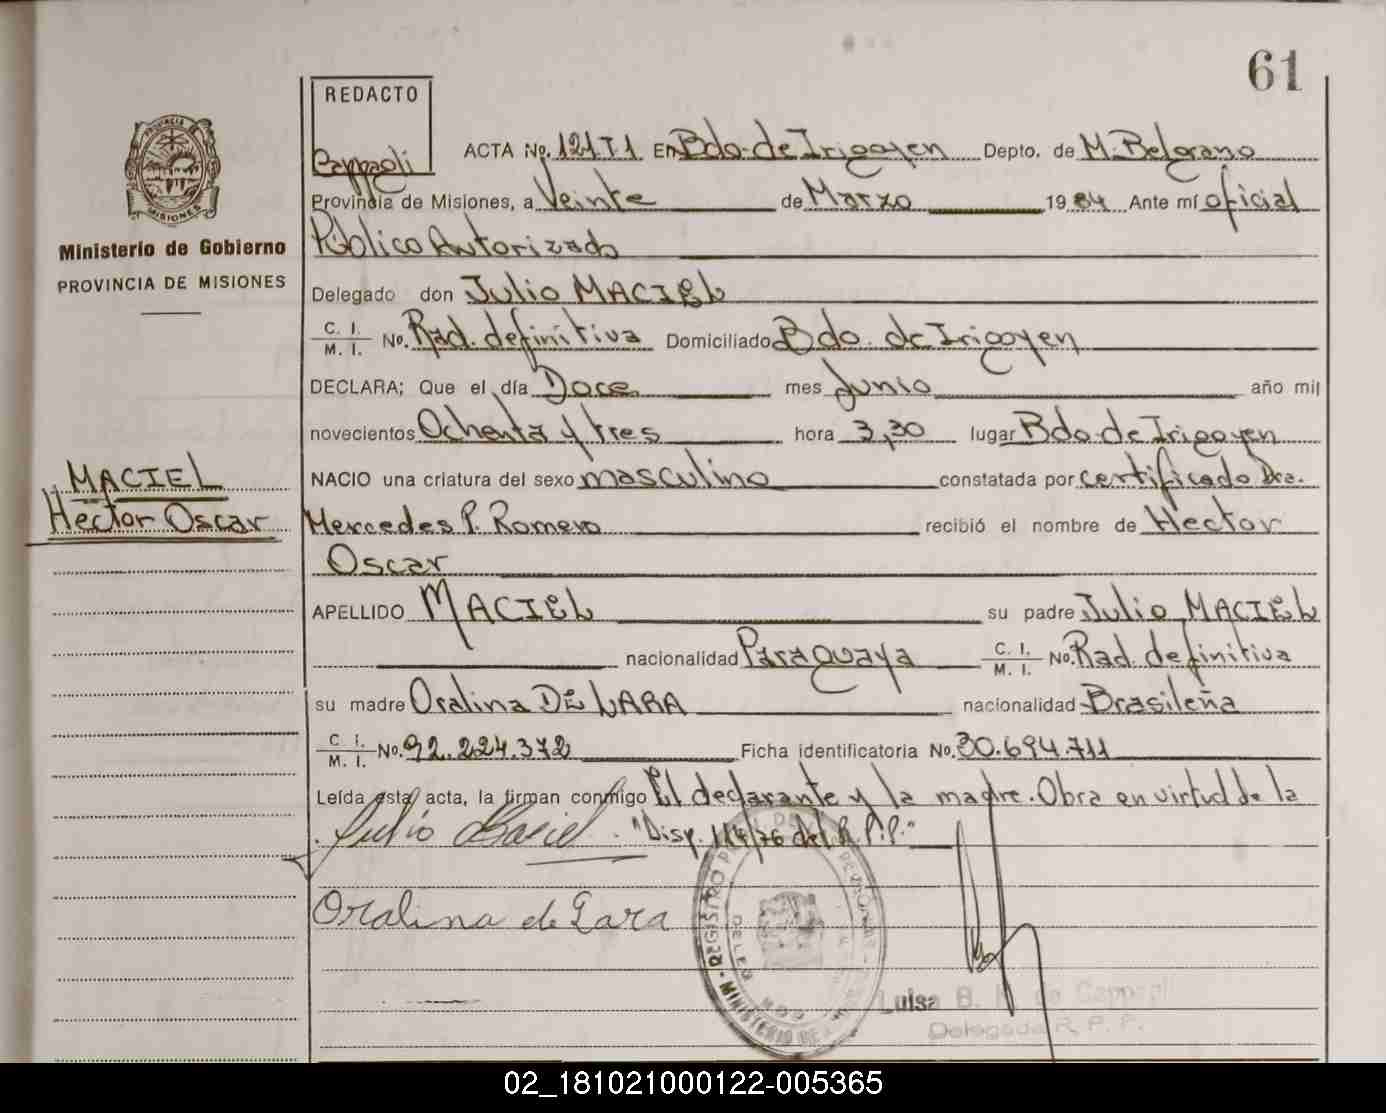 61
REDACTO
Cappagli
ACTA No. 121 T1 En Bdo. de Irigoyen Depto. de M. Belgrano
Provincia de Misiones, a Veinte de Marzo 1984 Ante mí oficial
Público Autorizado
Delegado don Julio MACIEL
C. I. / M. I. No. Rad. definitiva Domiciliado Bdo. de Irigoyen
DECLARA; Que el día Doce mes Junio año mil
novecientos Ochenta y tres hora 3,30 lugar Bdo. de Irigoyen
NACIO una criatura del sexo masculino constatada por certificado Dra.
Mercedes P. Romero recibió el nombre de Hector
Oscar
APELLIDO MACIEL su padre Julio MACIEL
nacionalidad Paraguaya C. I. / M. I. No. Rad. definitiva
su madre Oralina DE LARA nacionalidad Brasileña
C. I. / M. I. No. 92.224.372 Ficha identificatoria No. 30.694.711
Leída esta acta, la firman conmigo El declarante y la madre. Obra en virtud de la
"Disp. 114/76 del R.P.P."
Julio Maciel
Oralina de Lara
Luisa B. de Cappagli
Delegada R. P. P.
Ministerio de Gobierno
PROVINCIA DE MISIONES
MACIEL
Hector Oscar
PROVINCIA DE
MISIONES
REGISTRO
MINISTERIO DE
02_181021000122-005365